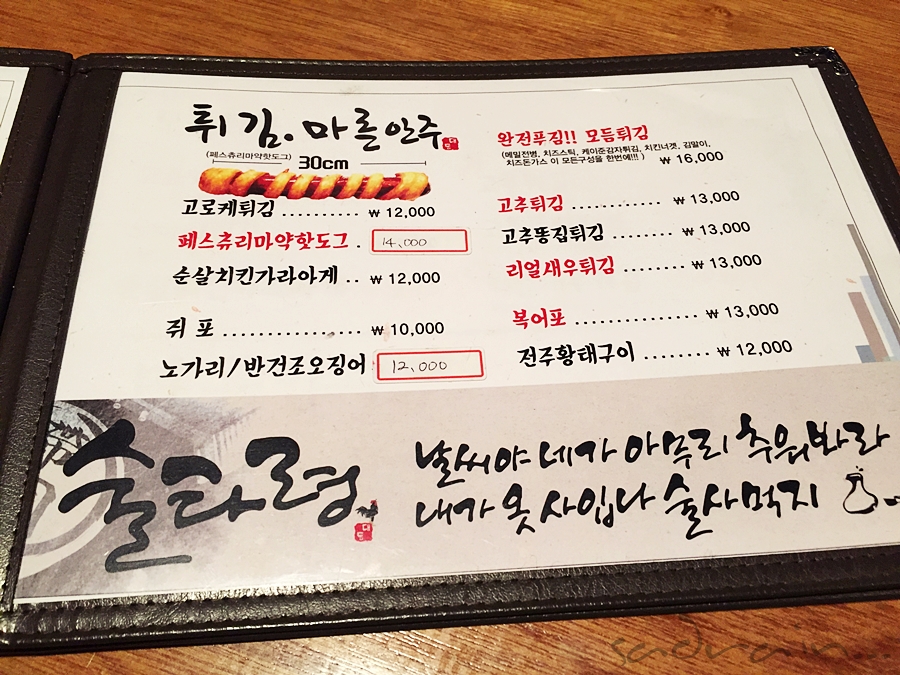 튀김. 마른안주
(페스츄리마약핫도그) 30cm
고로케튀김 .......... ₩ 12,000
페스츄리마약핫도그 . 14,000
순살치킨가라아게 .. ₩ 12,000
쥐 포 ................ ₩ 10,000
노가리/반건조오징어 12,000
완전푸짐!! 모듬튀김
(메밀전병, 치즈스틱, 케이준감자튀김, 치킨너겟, 김말이,
치즈돈가스 이 모든구성을 한번에!!! ) ₩ 16,000
고추튀김 ............ ₩ 13,000
고추똥집튀김 ........ ₩ 13,000
리얼새우튀김 ........ ₩ 13,000
복어포 ................ ₩ 13,000
전주황태구이 ........ ₩ 12,000
술타령
날씨야 네가 아무리 추워봐라
내가 옷 사입나 술사먹지
sadrain...